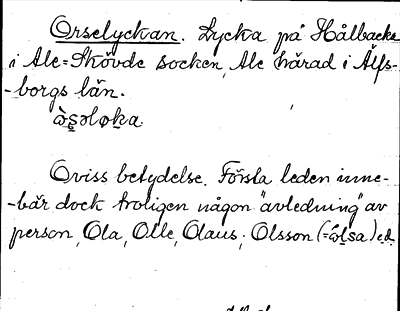 Orselyckan. Lycka på Hålbacke
i Ale=Skövde socken, Ale härad i Älfs-
-borgs län.
Oviss betydelse. Första leden inne-
-bär dock troligen någon "avledning" av
person, Ola, Olle, Olaus; Olsson